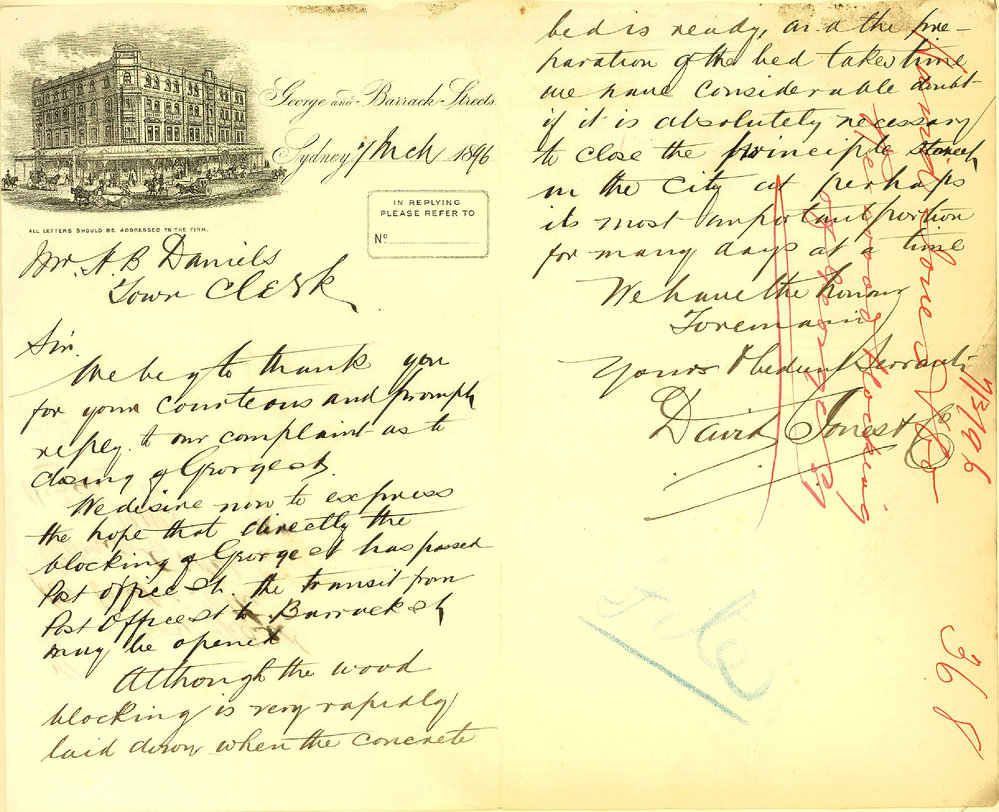 George and Barrack Streets.
Sydney, 7 Mch 1896
IN REPLYING
PLEASE REFER TO
No.
ALL LETTERS SHOULD BE ADDRESSED TO THE FIRM.
Mr. A B Daniels
Town Clerk
Sir.
We beg to thank you
for your courteous and prompt
reply to our complaint as to
closing of George st.
We desire now to express
the hope that directly the
blocking of George st has passed
Post Office st. the transit from
Post Office st to Barrack st
may be opened
Although the wood
blocking is very rapidly
laid down when the concrete
bed is ready, and the pre-
paration of the bed takes time
we have considerable doubt
if it is absolutely necessary
to close the principle street
in the city at perhaps
its most important portion
for many days at a time
We have the honour
To remain
Yours Obedient Servants
David Jones & Co
David Jones & Co
re wood blocking
of George St
7/3/96
368